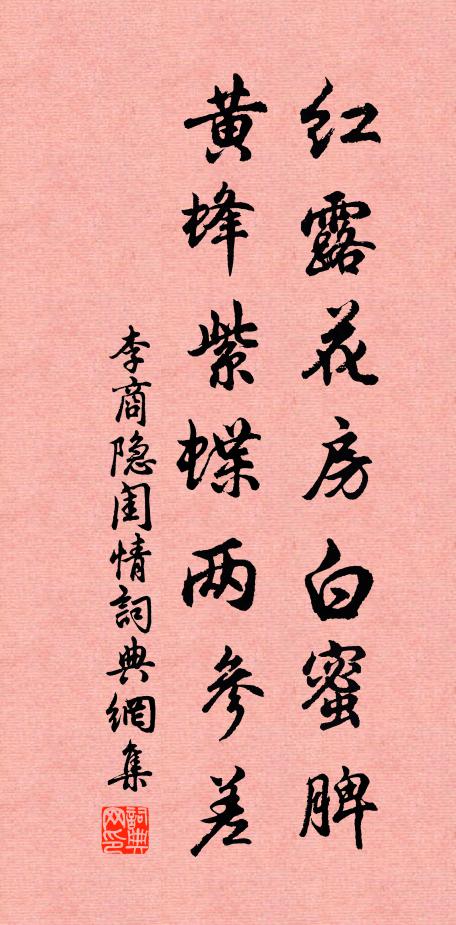 红露花房白蜜脾
黄蜂紫蝶两参差
李商隐闺情詞典網集
詞典网印